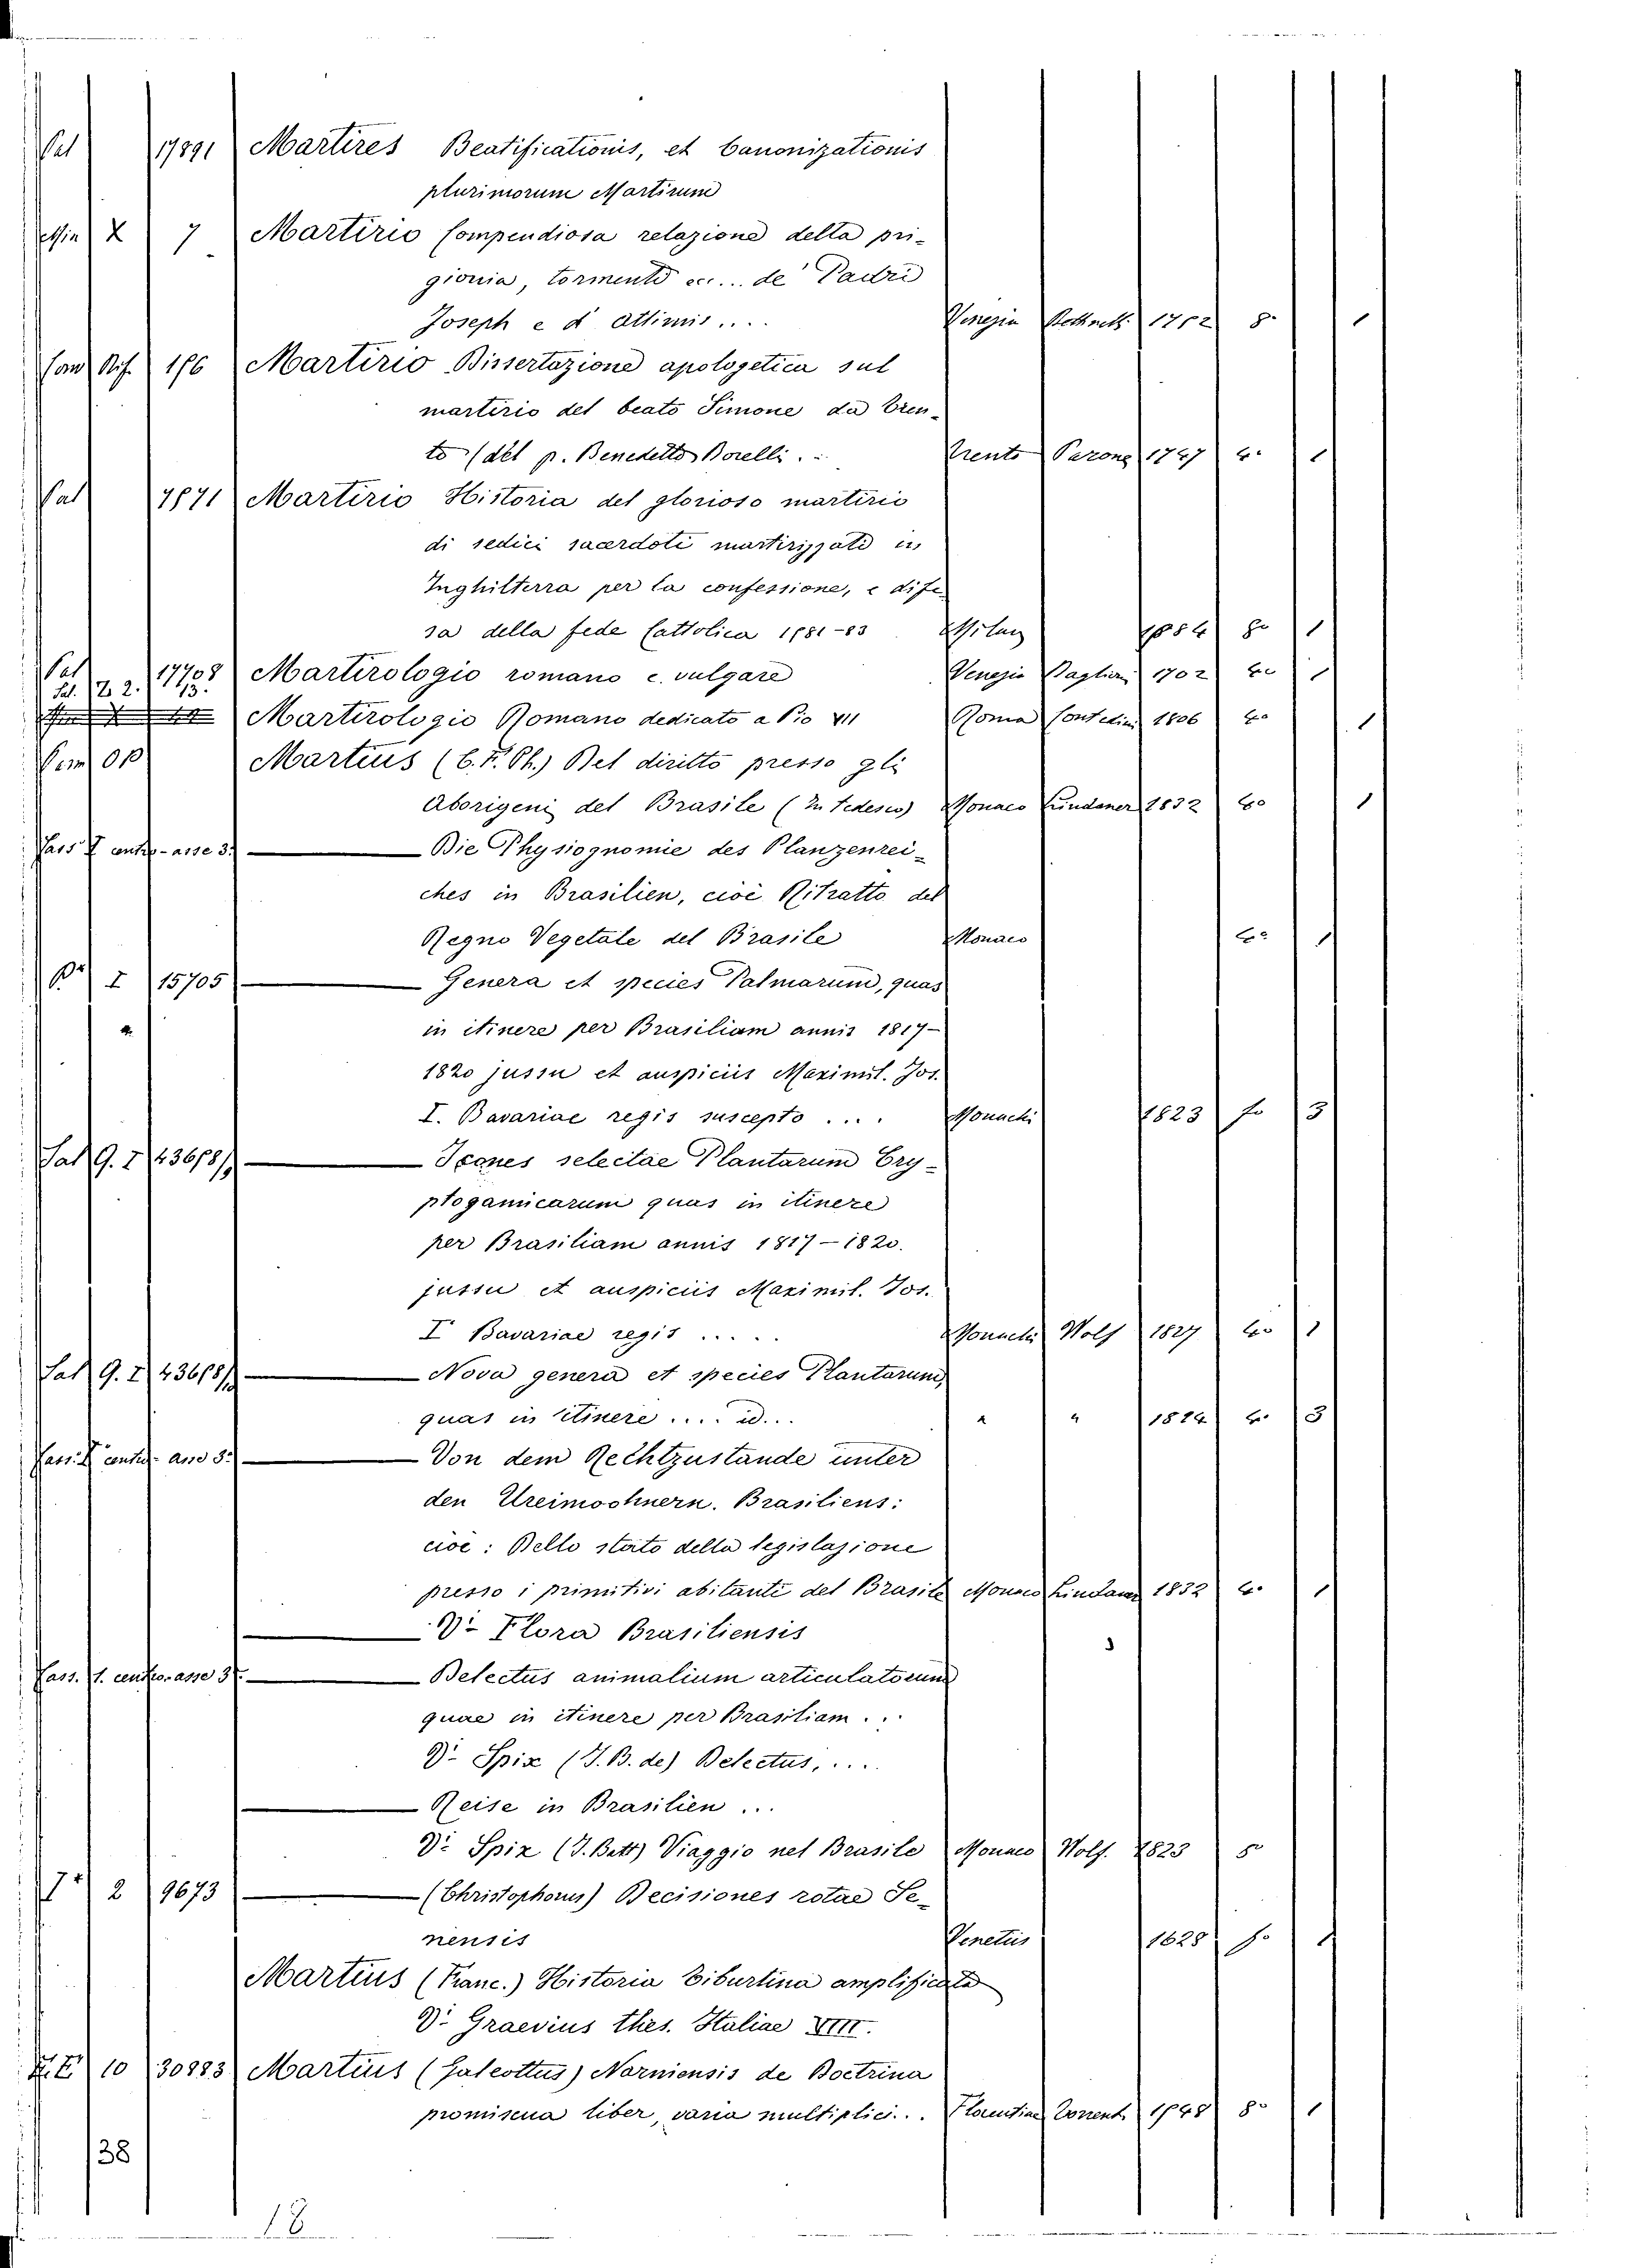 Sal 17891 Martires Beatificationis, et Canonizationis
plurimorum Martirum
X 7 Martirio Compendiosa relazione della pri-
gionia, tormenti ec... de' Padri
Joseph e d'Attimis.... Venezia 1752 8° 1
Rif. 156 Martirio Dissertazione apologetica sul
martirio del beato Simone da Tren-
to (del p. Benedetto Bonelli. .. Trento Parone 1747 4° 1
Sal 7571 Martirio Historia del glorioso martirio
di sedici sacerdoti martirizzati in
Inghilterra per la confessione, e dife-
sa della fede cattolica 1581-83 Milan 1584 8° 1
Sal 17708 Martirologio romano e. vulgare Venezia Baglioni 1702 4° 1
Sal. Z. 2. 13.
Martirologio Romano dedicato a Pio VII Roma 1806 4° 1
Martius (C. F. Ph.) Del diritto presso gli
Aborigeni del Brasile (In tedesco) Monaco Lindaner 1832 4° 1
Cass I centro-asse 3. — Die Physiognomie des Planzenrei-
ches in Brasilien, cioè Ritratto del
Regno Vegetale del Brasile Monaco 4° 1
I 15705 — Genera et species Palmarum, quas
in itinere per Brasiliam annis 1817-
1820 jussu et auspiciis Maximil. Jos.
I. Bavariae regis suscepto .... Monachi 1823 fo 3
Sal G. I 43658/9 — Icones selectae Plantarum Cry-
ptogamicarum quas in itinere
per Brasiliam annis 1817-1820.
jussu et auspiciis Maximil. Jos.
I Bavariae regis ..... Monachi Wolf 1827 4° 1
Sal G. I 43658/ — Nova genera et species Plantarum,
quas in itinere .... id... " " 1824 4° 3
Cass. I centro- asse 3. — Von dem Rechtzustande unter
den Ureimochnern. Brasiliens:
cioè: Dello stato della legislazione
presso i primitivi abitanti del Brasile Monaco Lindaner 1832 4° 1
— V. Flora Brasiliensis
Cass. I. centro-asse 3. — Delectus animalium articulatorum
quae in itinere per Brasiliam...
V. Spix (J. B. de) Delectus,....
— Reise in Brasilien ...
V. Spix (J. Batt) Viaggio nel Brasile Monaco Wolf. 1823
2 9673 — (Christophorus) Decisiones rotae Se-
nensis Venetiis 1628 fo 1
Martius (Franc.) Historia Tiburtina amplificata
V. Graevius thes. Italiae VIII.
10 30883 Martius (Galeottus) Narniensis de Doctrina
promiscua liber, varia multiplici... Florentiae Torrent. 1548 8° 1
38
18